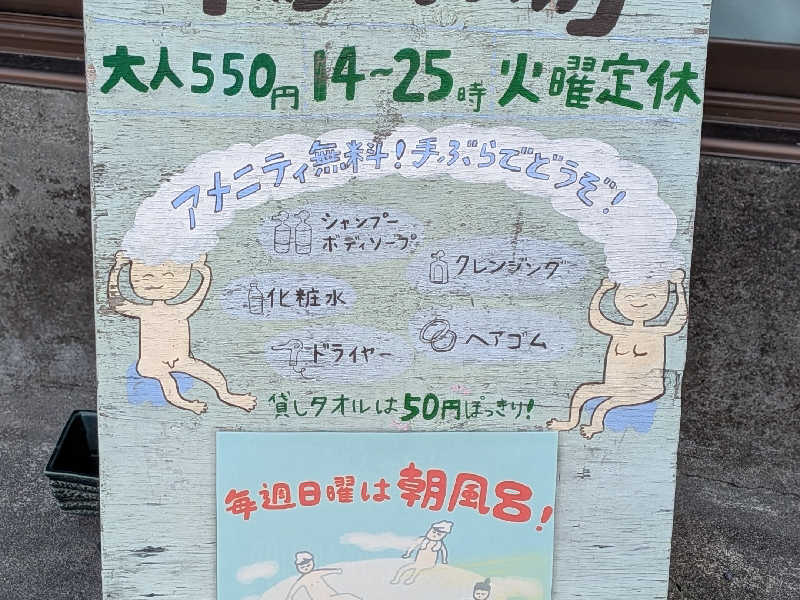 大人550円 14~25時 火曜定休
アメニティ無料!手ぶらでどうぞ!
シャンプー
ボディソープ
クレンジング
化粧水
ヘアゴム
ドライヤー
貸しタオルは50円ぽっきり!
毎週日曜は朝風呂!